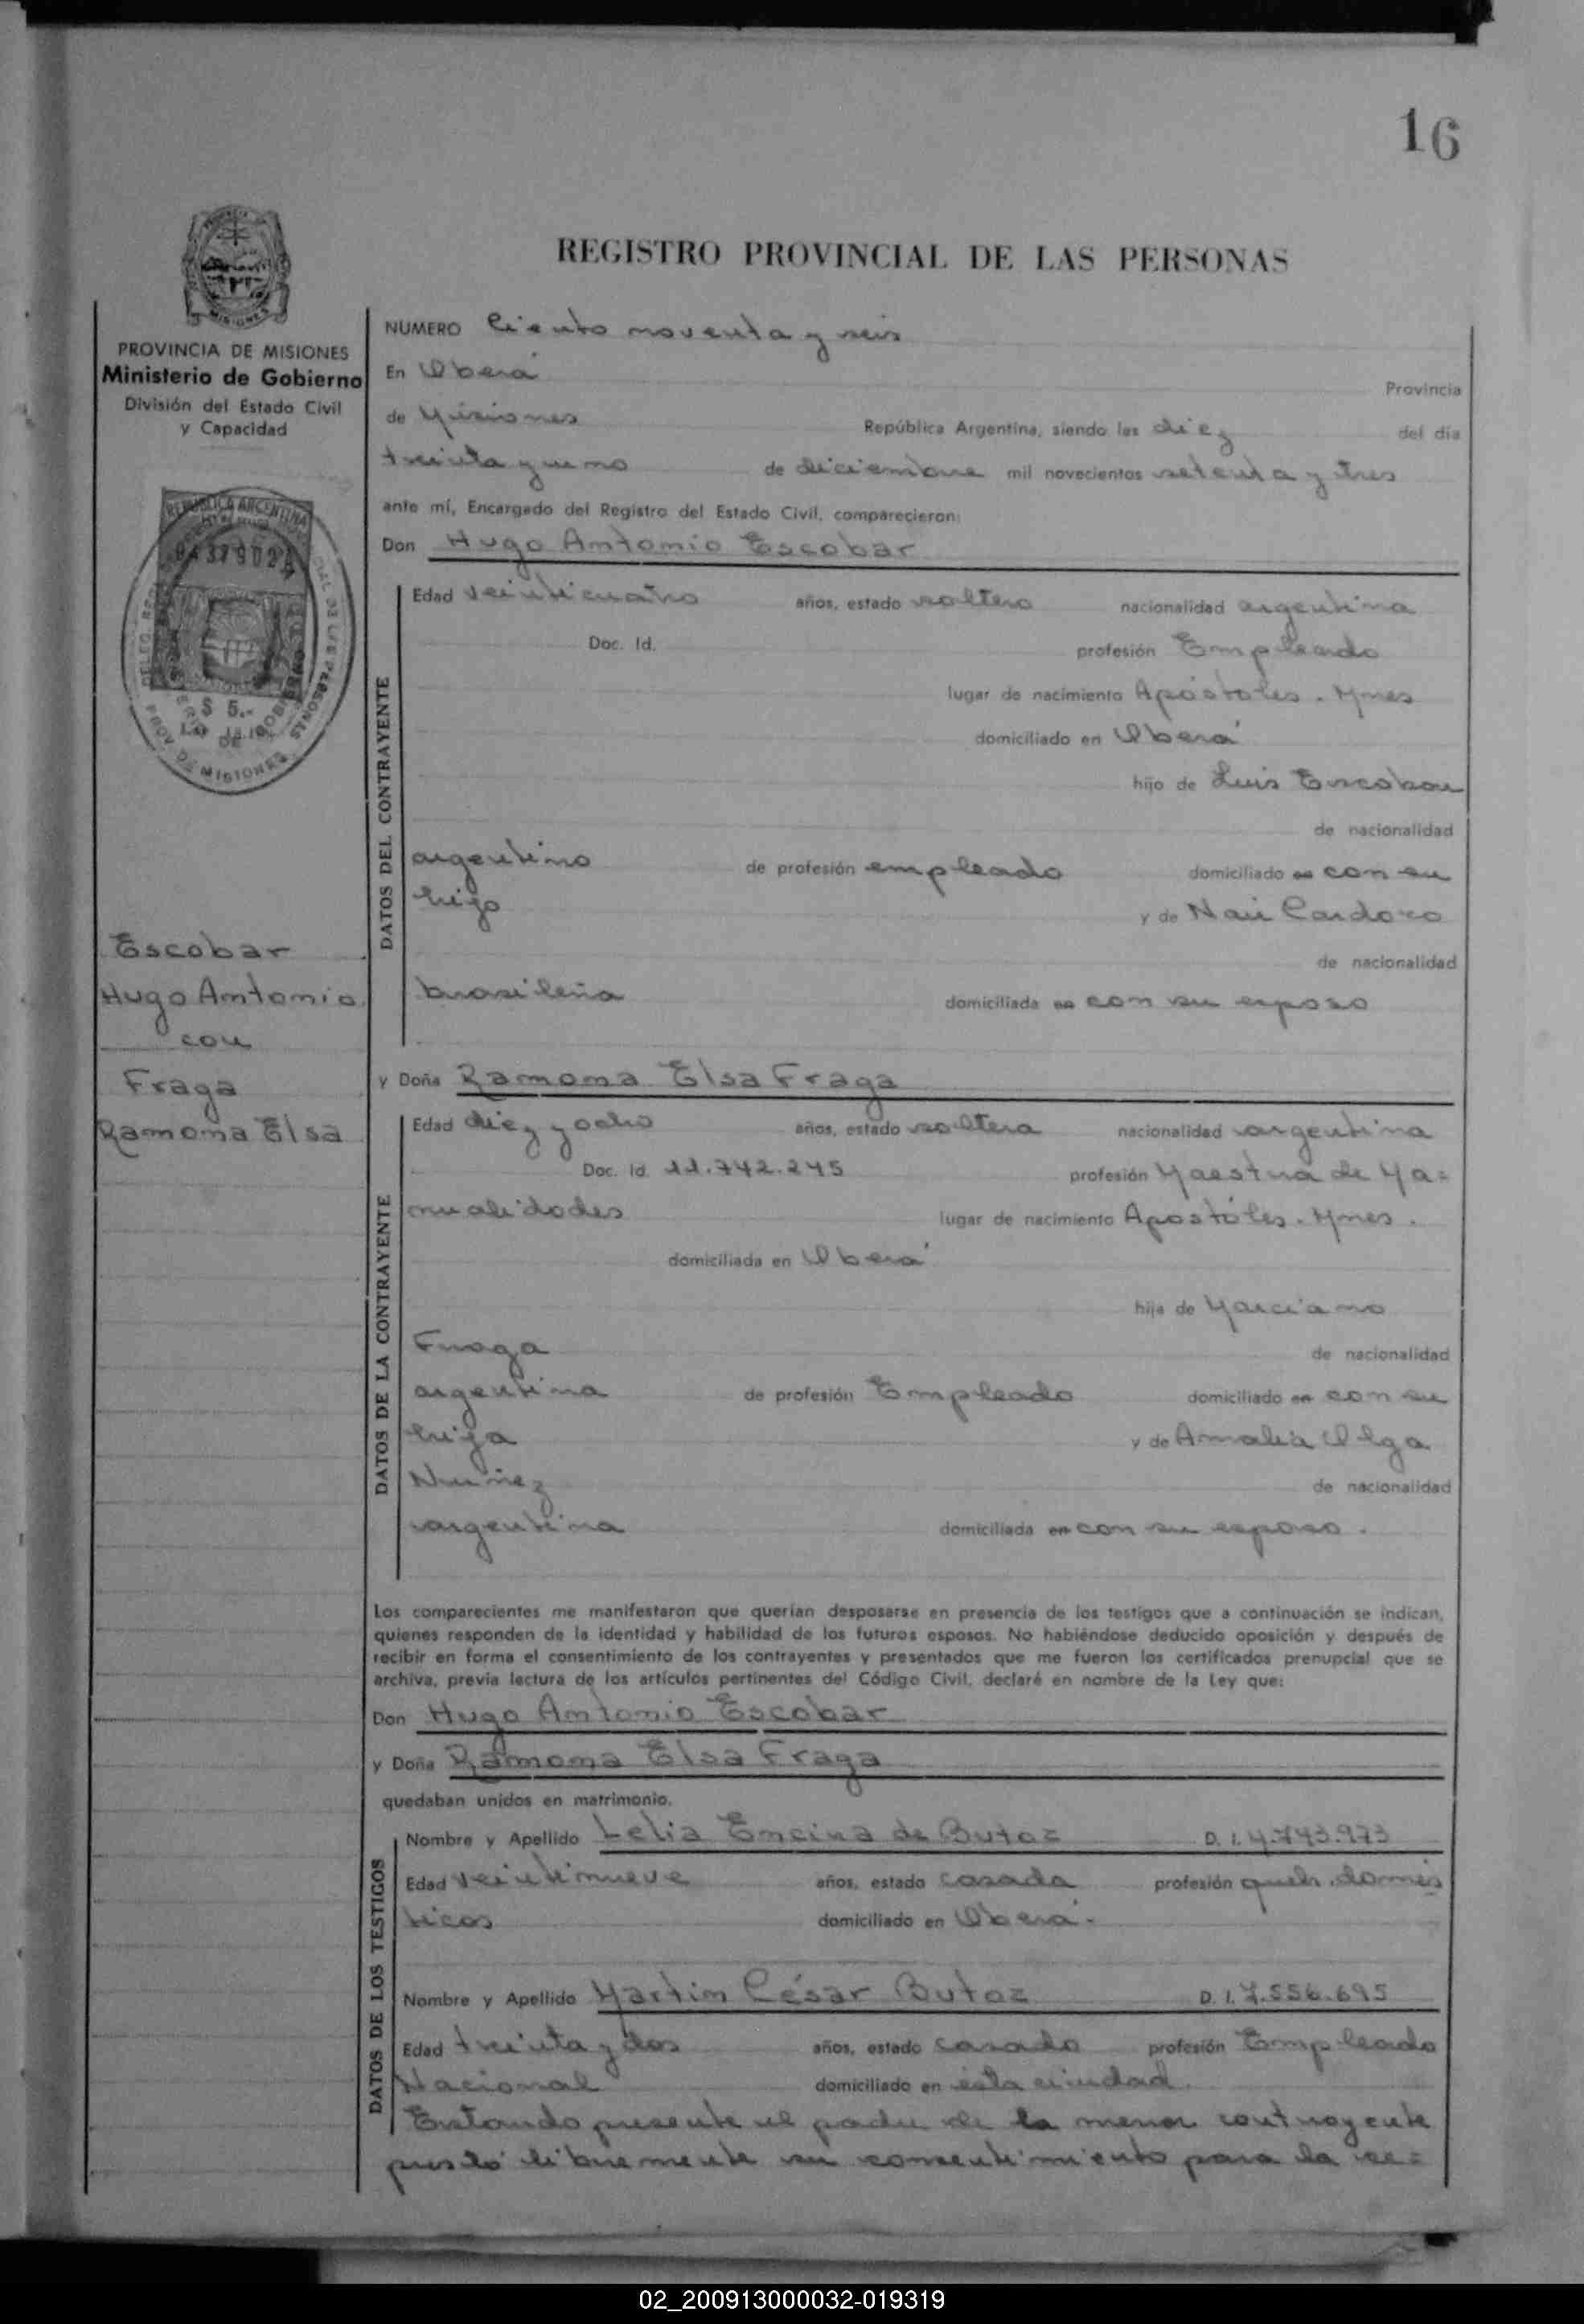 16
REGISTRO PROVINCIAL DE LAS PERSONAS
MISIONES
PROVINCIA DE MISIONES
Ministerio de Gobierno
División del Estado Civil
y Capacidad
REPUBLICA ARGENTINA
$ 5.-
PROV. DE MISIONES
Escobar
Hugo Antonio
con
Fraga
Ramona Elsa
NUMERO Ciento noventa y seis
En Oberá Provincia
de Misiones República Argentina, siendo las diez del día
treinta y uno de diciembre mil novecientos setenta y tres
ante mí, Encargado del Registro del Estado Civil, comparecieron:
Don Hugo Antonio Escobar
DATOS DEL CONTRAYENTE
Edad veinticuatro años, estado soltero nacionalidad argentina
Doc. Id. profesión Empleado
lugar de nacimiento Apóstoles. Mnes
domiciliado en Oberá
hijo de Luis Escobar
de nacionalidad
argentino de profesión empleado domiciliado en con su
hijo y de Nair Cardozo
de nacionalidad
brasileña domiciliada en con su esposo
y Doña Ramona Elsa Fraga
DATOS DE LA CONTRAYENTE
Edad diez y ocho años, estado soltera nacionalidad argentina
Doc. Id. 11.742.245 profesión Maestra de Ma=
nualidades lugar de nacimiento Apóstoles. Mnes.
domiciliada en Oberá
hija de Marciano
Fraga de nacionalidad
argentina de profesión Empleado domiciliado en con su
hija y de Amalia Olga
Nuñez de nacionalidad
argentina domiciliada en con su esposo.
Los comparecientes me manifestaron que querían desposarse en presencia de los testigos que a continuación se indican,
quienes responden de la identidad y habilidad de los futuros esposos. No habiéndose deducido oposición y después de
recibir en forma el consentimiento de los contrayentes y presentados que me fueron los certificados prenupcial que se
archiva, previa lectura de los artículos pertinentes del Código Civil, declaré en nombre de la Ley que:
Don Hugo Antonio Escobar
y Doña Ramona Elsa Fraga
quedaban unidos en matrimonio.
DATOS DE LOS TESTIGOS
Nombre y Apellido Lelia Encina de Butoz D. I. 4.743.973
Edad veintinueve años, estado casada profesión queh. domés
ticos domiciliado en Oberá.
Nombre y Apellido Martin César Butoz D. I. 7.556.695
Edad treinta y dos años, estado casado profesión Empleado
Nacional domiciliado en ésta ciudad.
Estando presente el padre de la menor contrayente
prestó libremente su consentimiento para la ce=
02_200913000032-019319